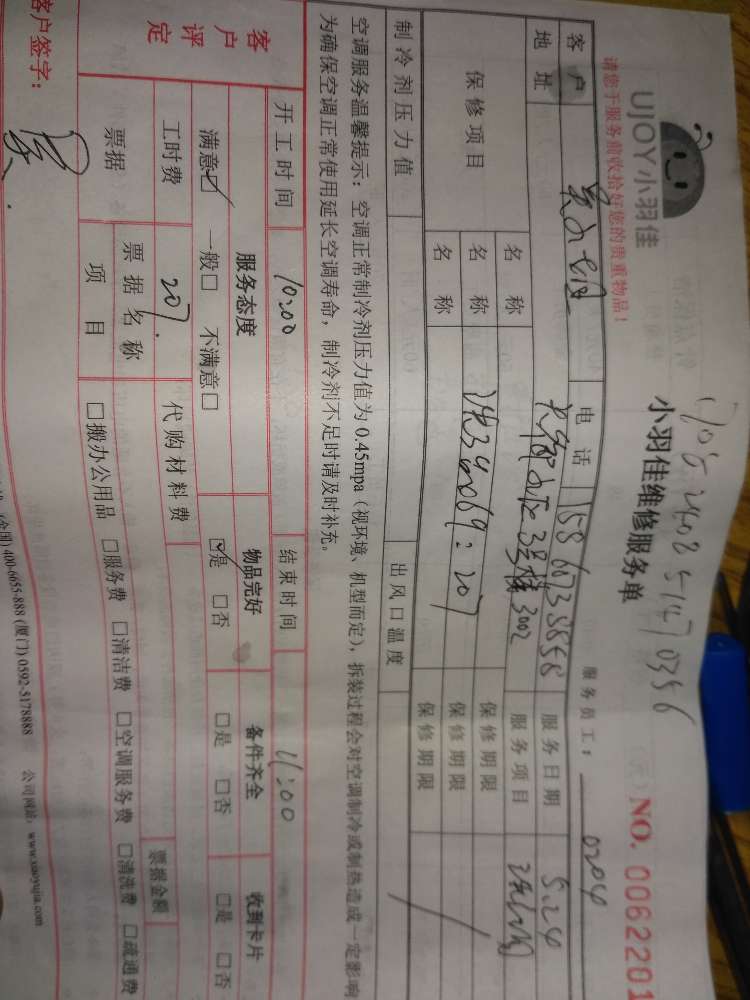 UJOY小羽佳
170524085147 0356
小羽佳维修服务单
NO. 0062201
请您于服务前收拾好您的贵重物品！
服务员工： 0204
客户
电话
服务日期 5.24
地址
3号楼3002
服务项目
保修项目
名称
保修期限
名称
保修期限
名称
保修期限
制冷剂压力值
出风口温度
空调服务温馨提示：空调正常制冷剂压力值为0.45mpa（视环境、机型而定），拆装过程会对空调制冷或制热造成一定影响
为确保空调正常使用延长空调寿命，制冷剂不足时请及时补充。
开工时间 10:00 结束时间 11:00
客户评定
服务态度 物品完好 备件齐全 收到卡片
满意☑ 一般□ 不满意□ ☑是 □否 □是 □否 □是 □否
工时费 207. 代购材料费
票据 票据名称 票据金额
项目 □搬办公用品 □服务费 □清洁费 □空调服务费 □清洗费 □疏通费
客户签字：
(全国) 400-6655-888 (厦门) 0592-5178888 公司网站：www.xiaoyujia.com